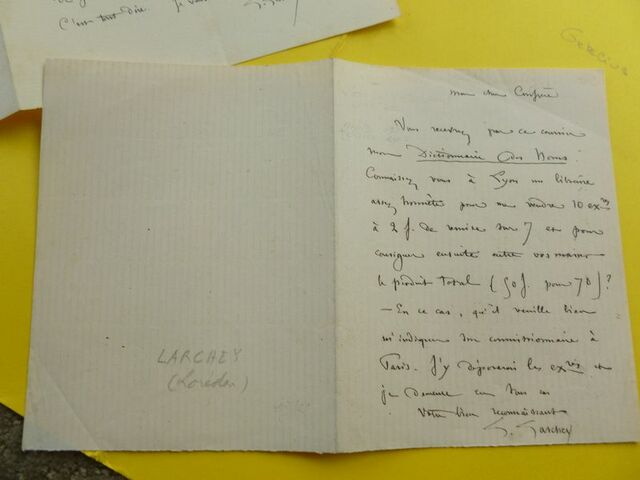 C'est tout dire. Je
Gercius
LARCHEY
(Lorédan)
mon cher Confrère
Vous recevrez par ce courrier
mon Dictionnaire des Noms.
Connaissez vous à Lyon un libraire
assez honnête pour me vendre 10 exres
à 2 f. de remise sur 7 et pour
consigner ensuite entre vos mains
le produit total (50 f. pour 70)?
— En ce cas, qu'il veuille bien
m'indiquer son commissionnaire à
Paris. J'y déposerai les exres et
je demeure en tous cas
Votre bien reconnaissant
L. Larchey